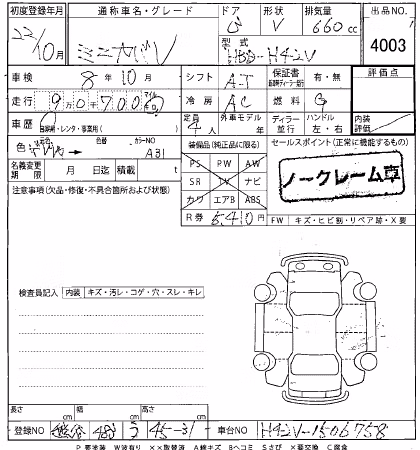 初度登録年月 通称車名・グレード ドア 形状 排気量 出品NO
22/10月 ミニカバV 5 V 660cc 4003
型式
HBD-H42V
車検 8年10月 シフト AT 保証書 有・無 評価点
走行 907000 冷房 AC 燃料 G
車歴 自家用・レンタ・事業用( ) 定員 4人 外車モデル年 ディーラー 並行 ハンドル 左・右 内装評価
色 色替 カラーNO A31
装備品(純正品に限る) セールスポイント(正常に機能するもの)
名義変更期限 月 日迄 積載 t
PS PW AW
SR TV ナビ
カワ エアB ABS
ノークレーム車
注意事項(欠品・修復・不具合箇所および状態)
R券 6410円 FW キズ・ヒビ割・リペア跡・X要
検査員記入 内装 キズ・汚レ・コゲ・穴・スレ・キレ
長さ cm 幅 cm 高さ cm
登録NO 480 う 45-31 車台NO H42V-1506758
P要塗装 W波有り XX取替済 Aキズ Bヘコミ Sさび X要交換 C腐食